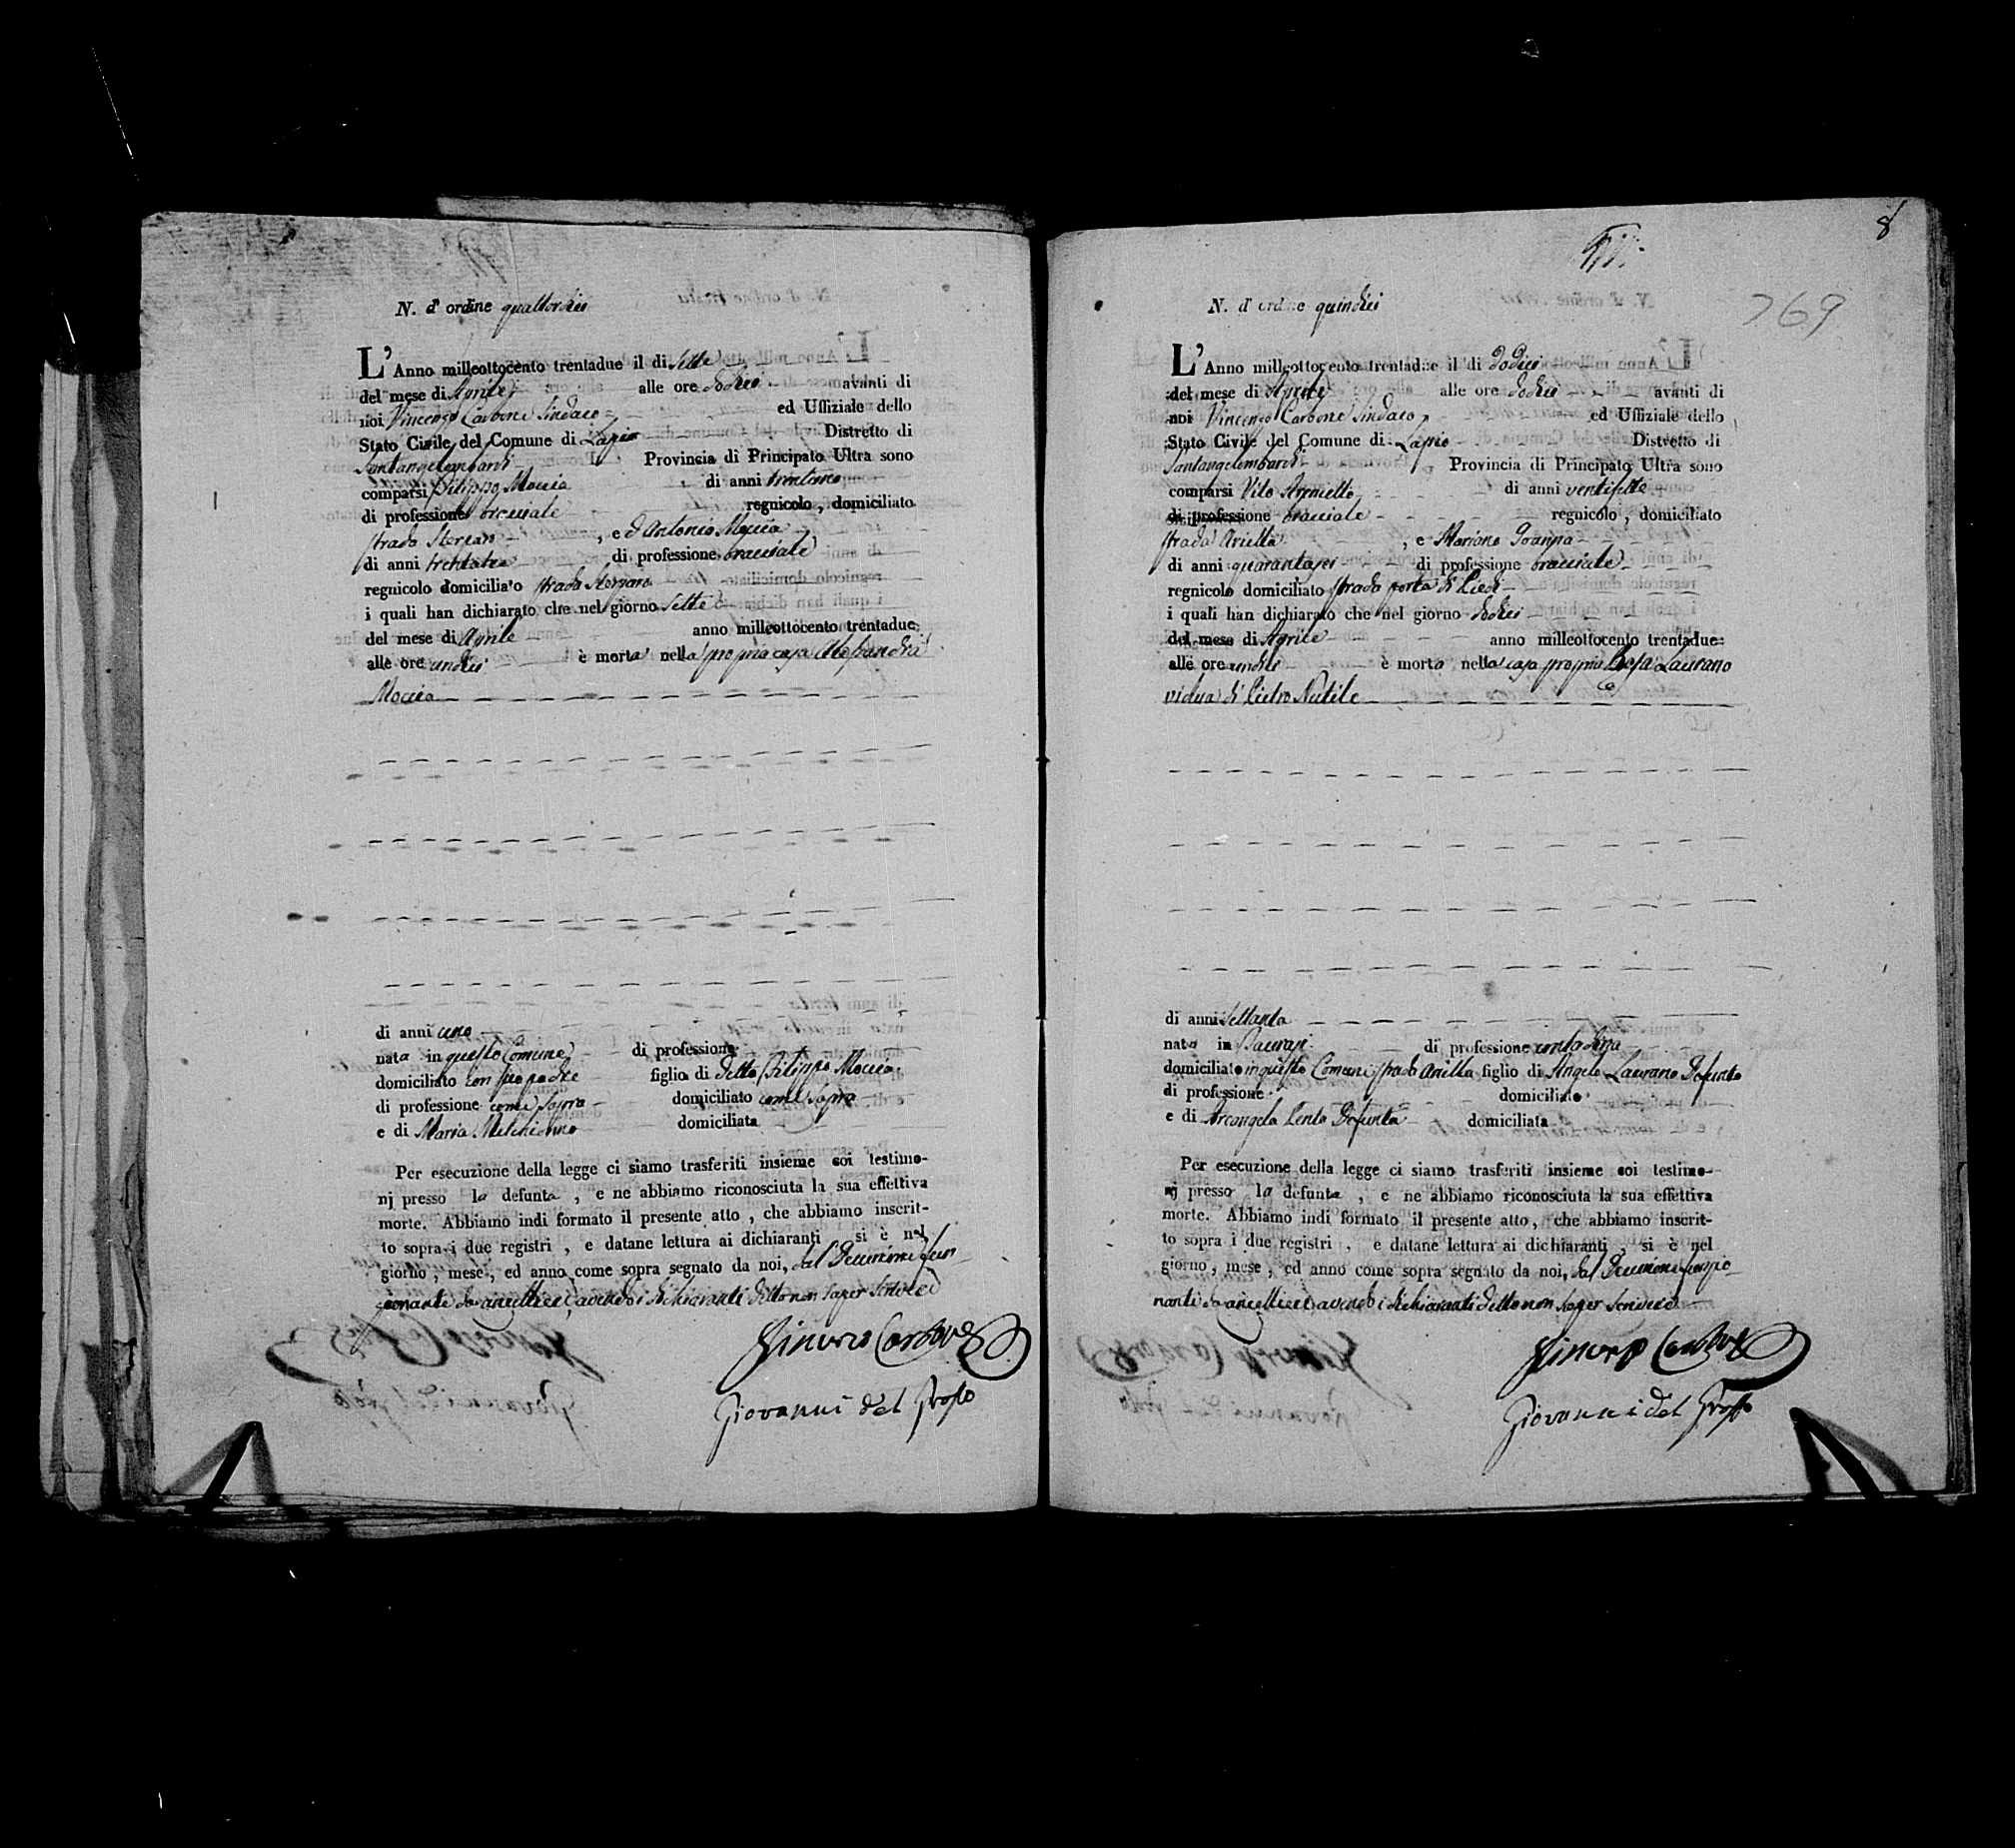 N. d'ordine quattordici
L'Anno milleottocento trentadue il di Sette
del mese di Aprile alle ore dodici avanti di
noi Vincenzo Carbone Sindaco ed Uffiziale dello
Stato Civile del Comune di Lapio Distretto di
Santangelombardi Provincia di Principato Ultra sono
comparsi Filippo Moccia di anni
di professione bracciale regnicolo, domiciliato
strada , e d'Antonio Moccia
di anni trentatre di professione bracciale
regnicolo domiciliato strada
i quali han dichiarato che nel giorno Sette
del mese di Aprile anno milleottocento trentadue
alle ore undici è morta nella propria casa Alessandra
Moccia
di anni uno
nata in questo Comune di professione
domiciliato con suo padre figlia di detto Filippo Moccia
di professione come sopra domiciliato come sopra
e di Maria Melchionno domiciliata
Per esecuzione della legge ci siamo trasferiti insieme coi testimo-
nj presso la defunta , e ne abbiamo riconosciuta la sua effettiva
morte. Abbiamo indi formato il presente atto , che abbiamo inscrit-
to sopra i due registri , e datane lettura ai dichiaranti si è nel
giorno , mese , ed anno come sopra segnato da noi, dal Decurione fun-
zionante da cancelliere, avendo i dichiaranti detto non saper scrivere
Vincenzo Carbone
Giovanni del Grosso
8
769
N. d'ordine quindici
L'Anno milleottocento trentadue il di dodici
del mese di Aprile alle ore dodici avanti di
noi Vincenzo Carbone Sindaco ed Uffiziale dello
Stato Civile del Comune di Lapio Distretto di
Santangelombardi Provincia di Principato Ultra sono
comparsi Vito di anni ventisette
di professione bracciale regnicolo , domiciliato
strada Ariella , e Mariano
di anni quarantasei di professione bracciale
regnicolo domiciliato strada porta di Piedi
i quali han dichiarato che nel giorno dodici
del mese di Aprile anno milleottocento trentadue
alle ore undici è morta nella casa propria Rosa Laurano
vidua di Pietro Nutile
di anni Settanta
nata in Taurasi di professione contadina
domiciliato in questo Comune strada Ariella figlio di Angelo Laurano Defunto
di professione domiciliato
e di Arcangela Lento Defunta domiciliata
Per esecuzione della legge ci siamo trasferiti insieme coi testimo-
nj presso la defunta , e ne abbiamo riconosciuta la sua effettiva
morte. Abbiamo indi formato il presente atto, che abbiamo inscrit-
to sopra i due registri , e datane lettura ai dichiaranti , si è nel
giorno , mese , ed anno come sopra segnato da noi, dal Decurione funzio-
nante da cancelliere, avendo i dichiaranti detto non saper scrivere
Vincenzo Carbone
Giovanni del Grosso